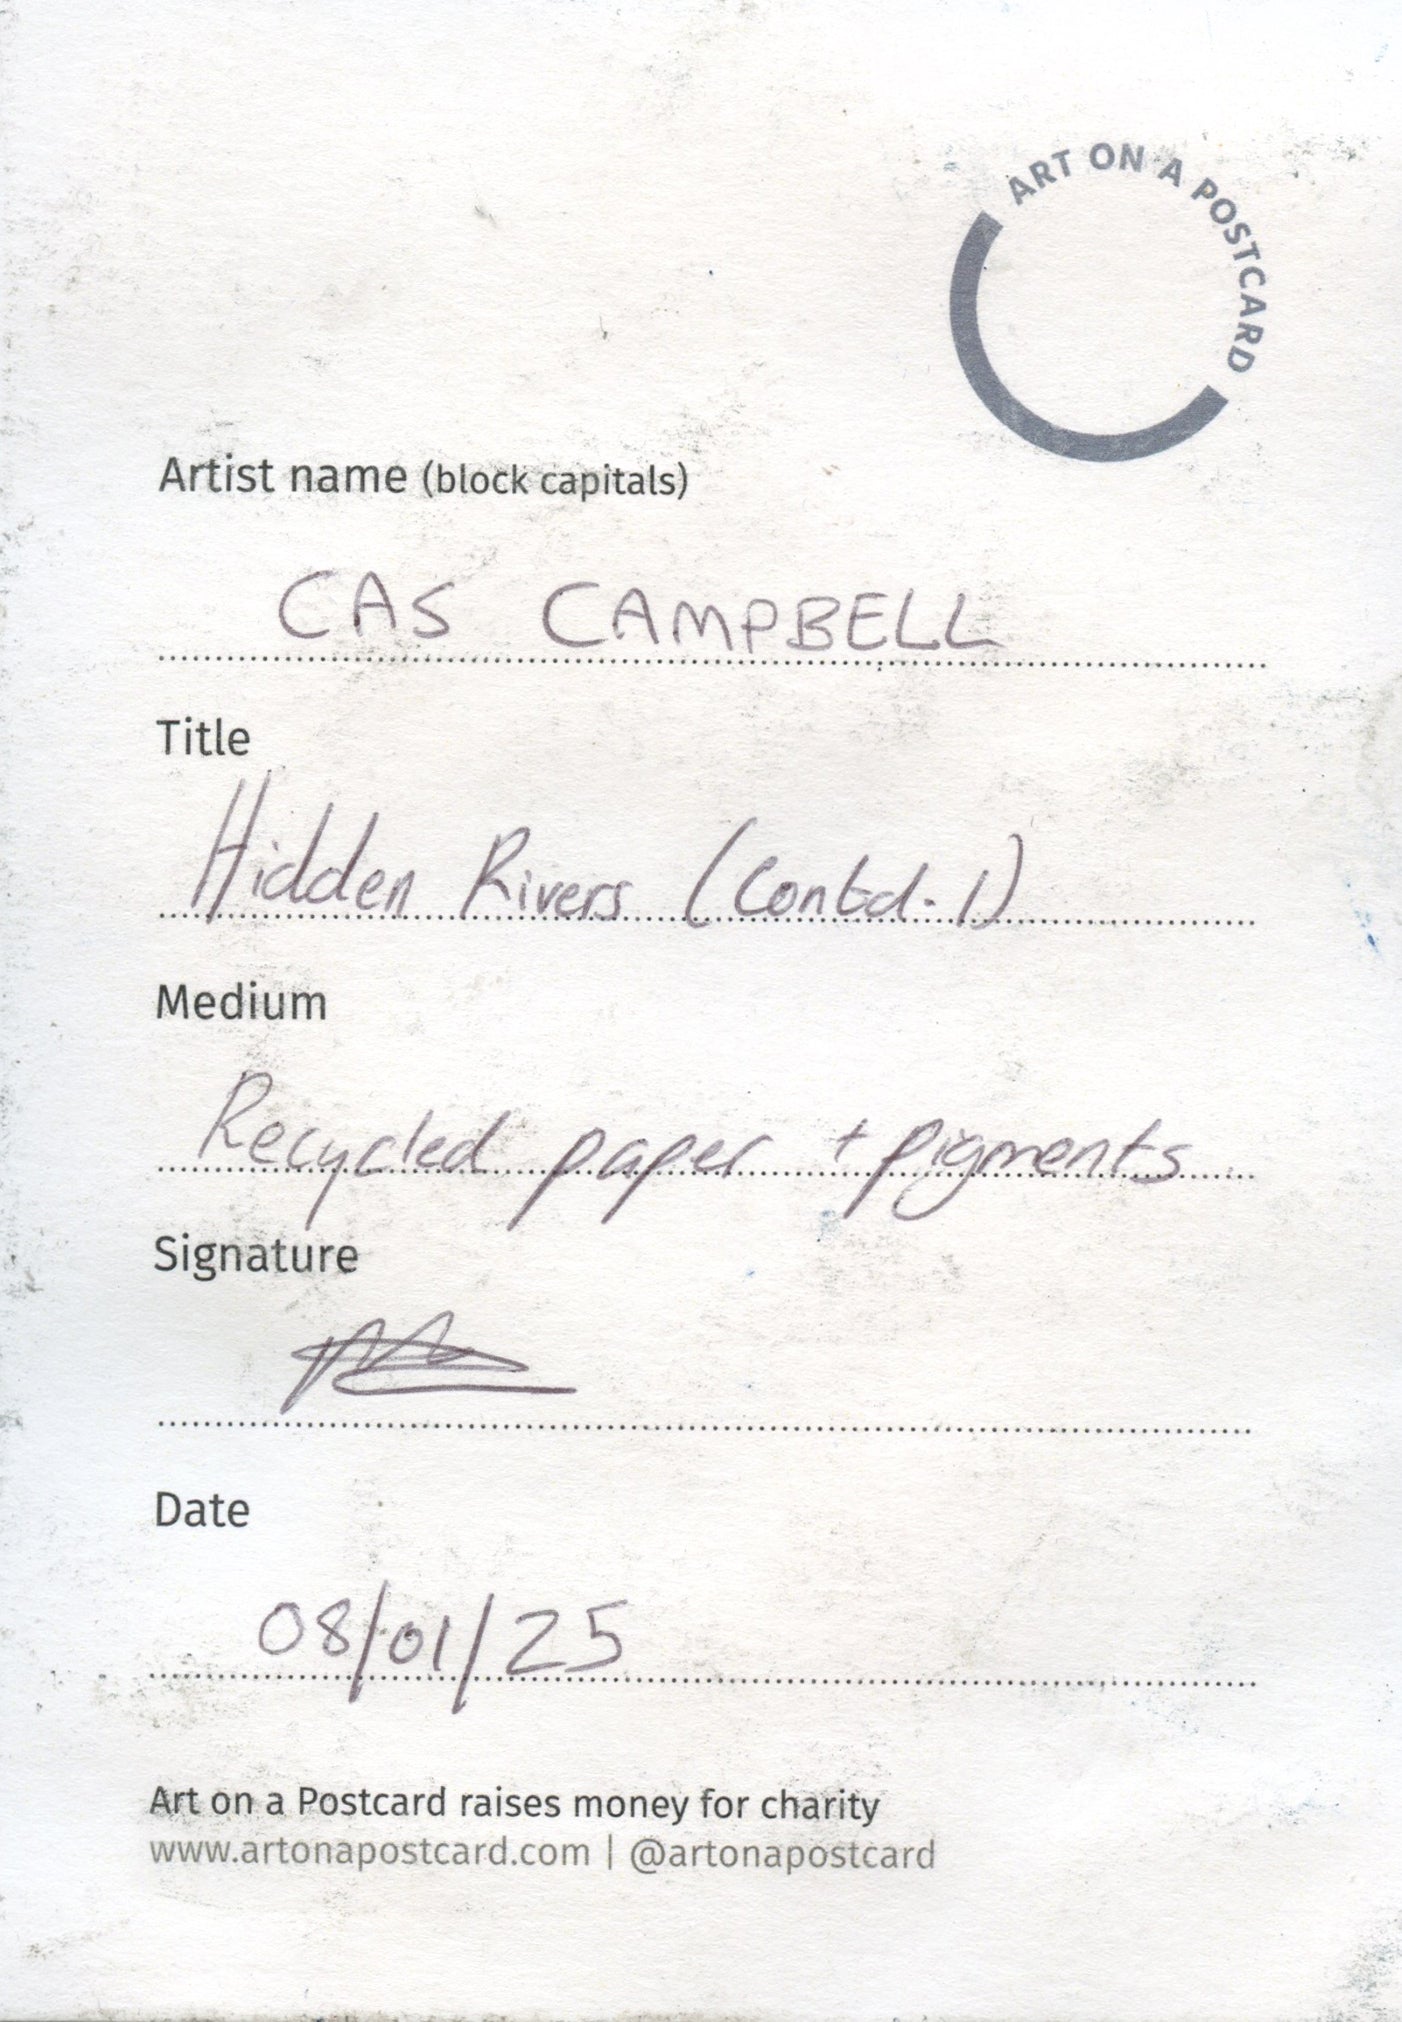 ART ON A POSTCARD
Artist name (block capitals)
CAS CAMPBELL
Title
Hidden Rivers (Contd. 1)
Medium
Recycled paper + pigments
Signature
Date
08/01/25
Art on a Postcard raises money for charity
www.artonapostcard.com | @artonapostcard